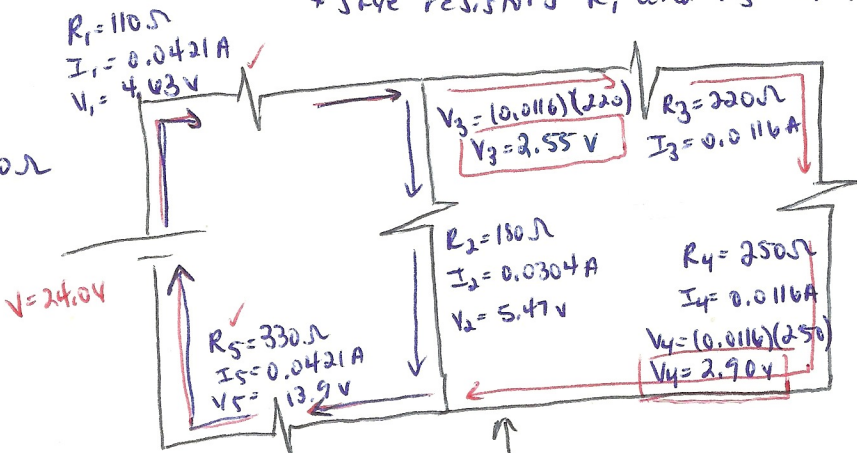 R₁=110Ω
I₁=0.0421A
V₁=4.63V
0Ω
V₃=(0.0116)(220)
V₃=2.55 V
R₃=220Ω
I₃=0.0116A
R₂=180Ω
I₂=0.0304A
V₂=5.47V
R₄=250Ω
I₄=0.0116A
V₄=(0.0116)(250)
V₄=2.90V
V=24.0V
R₅=330Ω
I₅=0.0421A
V₅=13.9V